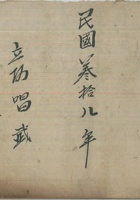 民國叁拾八年
立功唱戏